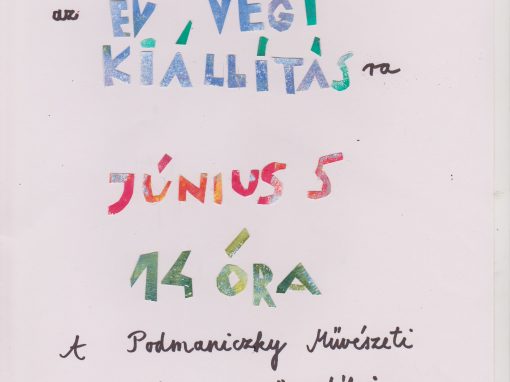 az ÉV VÉGI
KIÁLLÍTÁSra
JÚNIUS 5
14 ÓRA
A Podmaniczky Művészeti